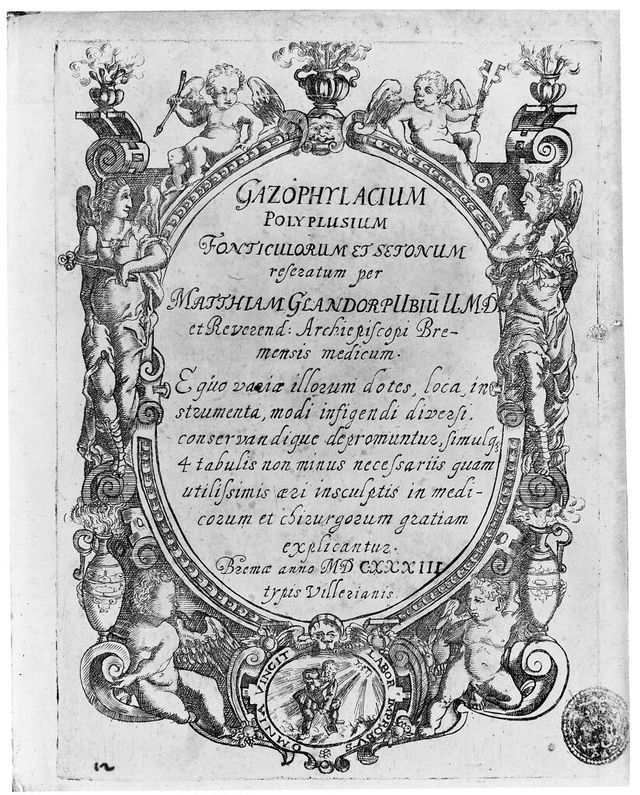 GAZOPHYLACIUM
POLYPLUSIUM
FONTICULORUM ET SETONUM
reseratum per
MATTHIAM GLANDORP UBIŪ U.M.D.
et Reverend: Archiepiscopi Bre-
mensis medicum.
E quo variæ illorum dotes, loca, in-
strumenta, modi infigendi diversi.
conservandique depromuntur, simulq;
4 tabulis non minus necessariis quam
utilissimis æri insculptis in medi-
corum et chirurgorum gratiam
explicantur.
Bremæ anno MD CXXXIII
typis Villerianis.
OMNIA VINCIT LABOR IMPROBUS
12